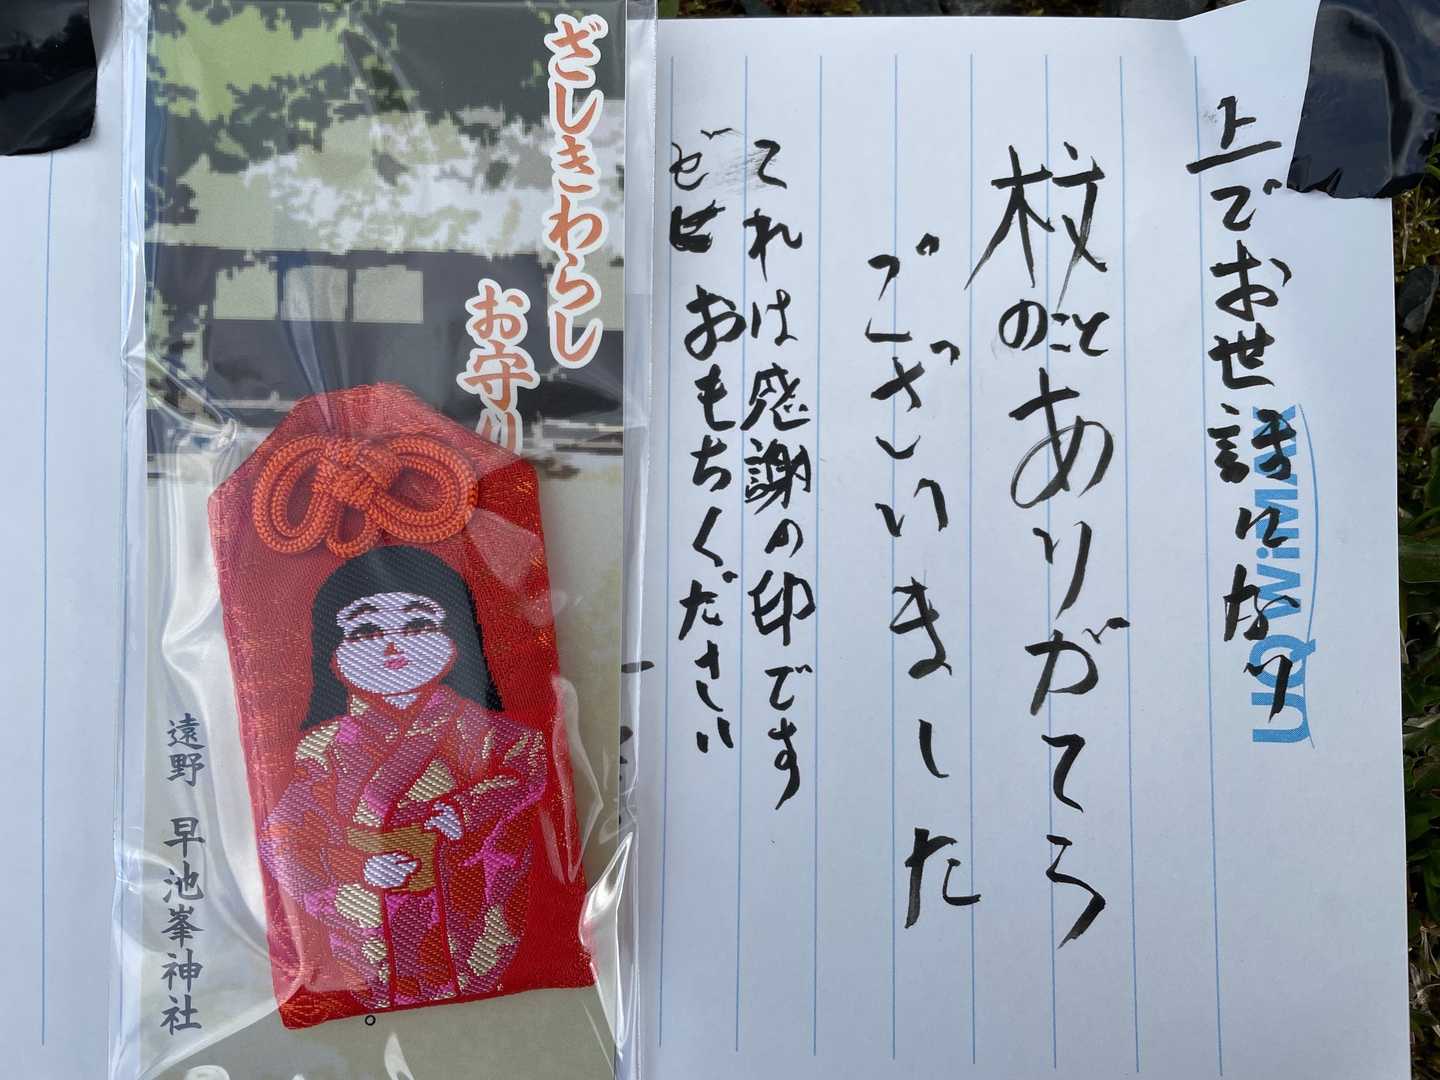 上でお世話になり
杖のことありがてう
ございました
てれは感謝の印です
ゼヒおもちください
UQ WiMAX
ざしきわらし
お守り
遠野 早池峯神社